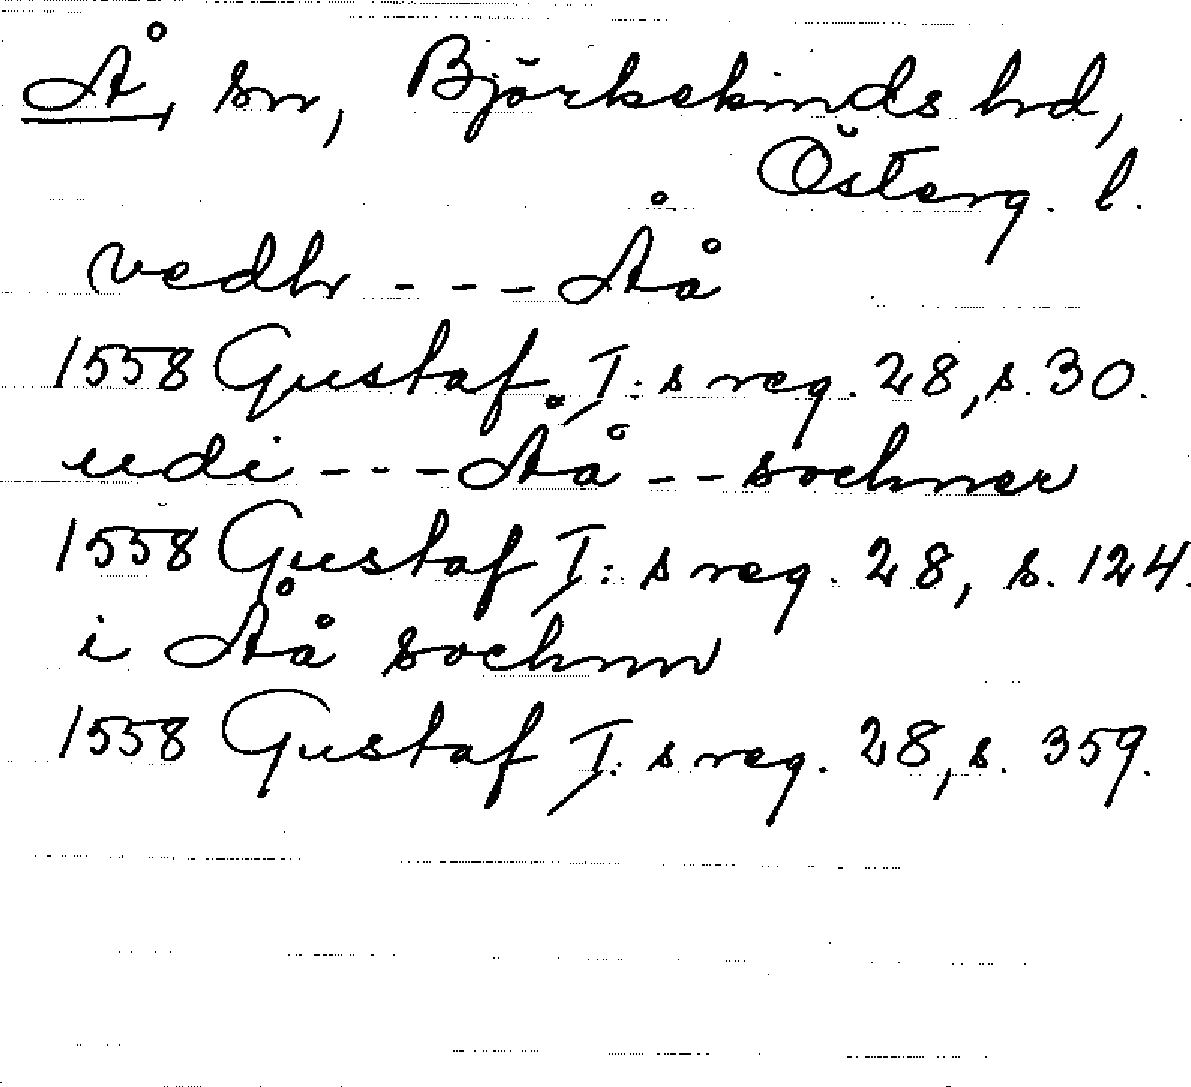 Å, sn, Björkekinds hd,
Österg. l.
vedhr --- Åå
1558 Gustaf I:s reg. 28, s. 30.
udi --- Åå -- sochner
1558 Gustaf I:s reg. 28, s. 124.
i Åå sochnn
1558 Gustaf I:s reg. 28, s. 359.